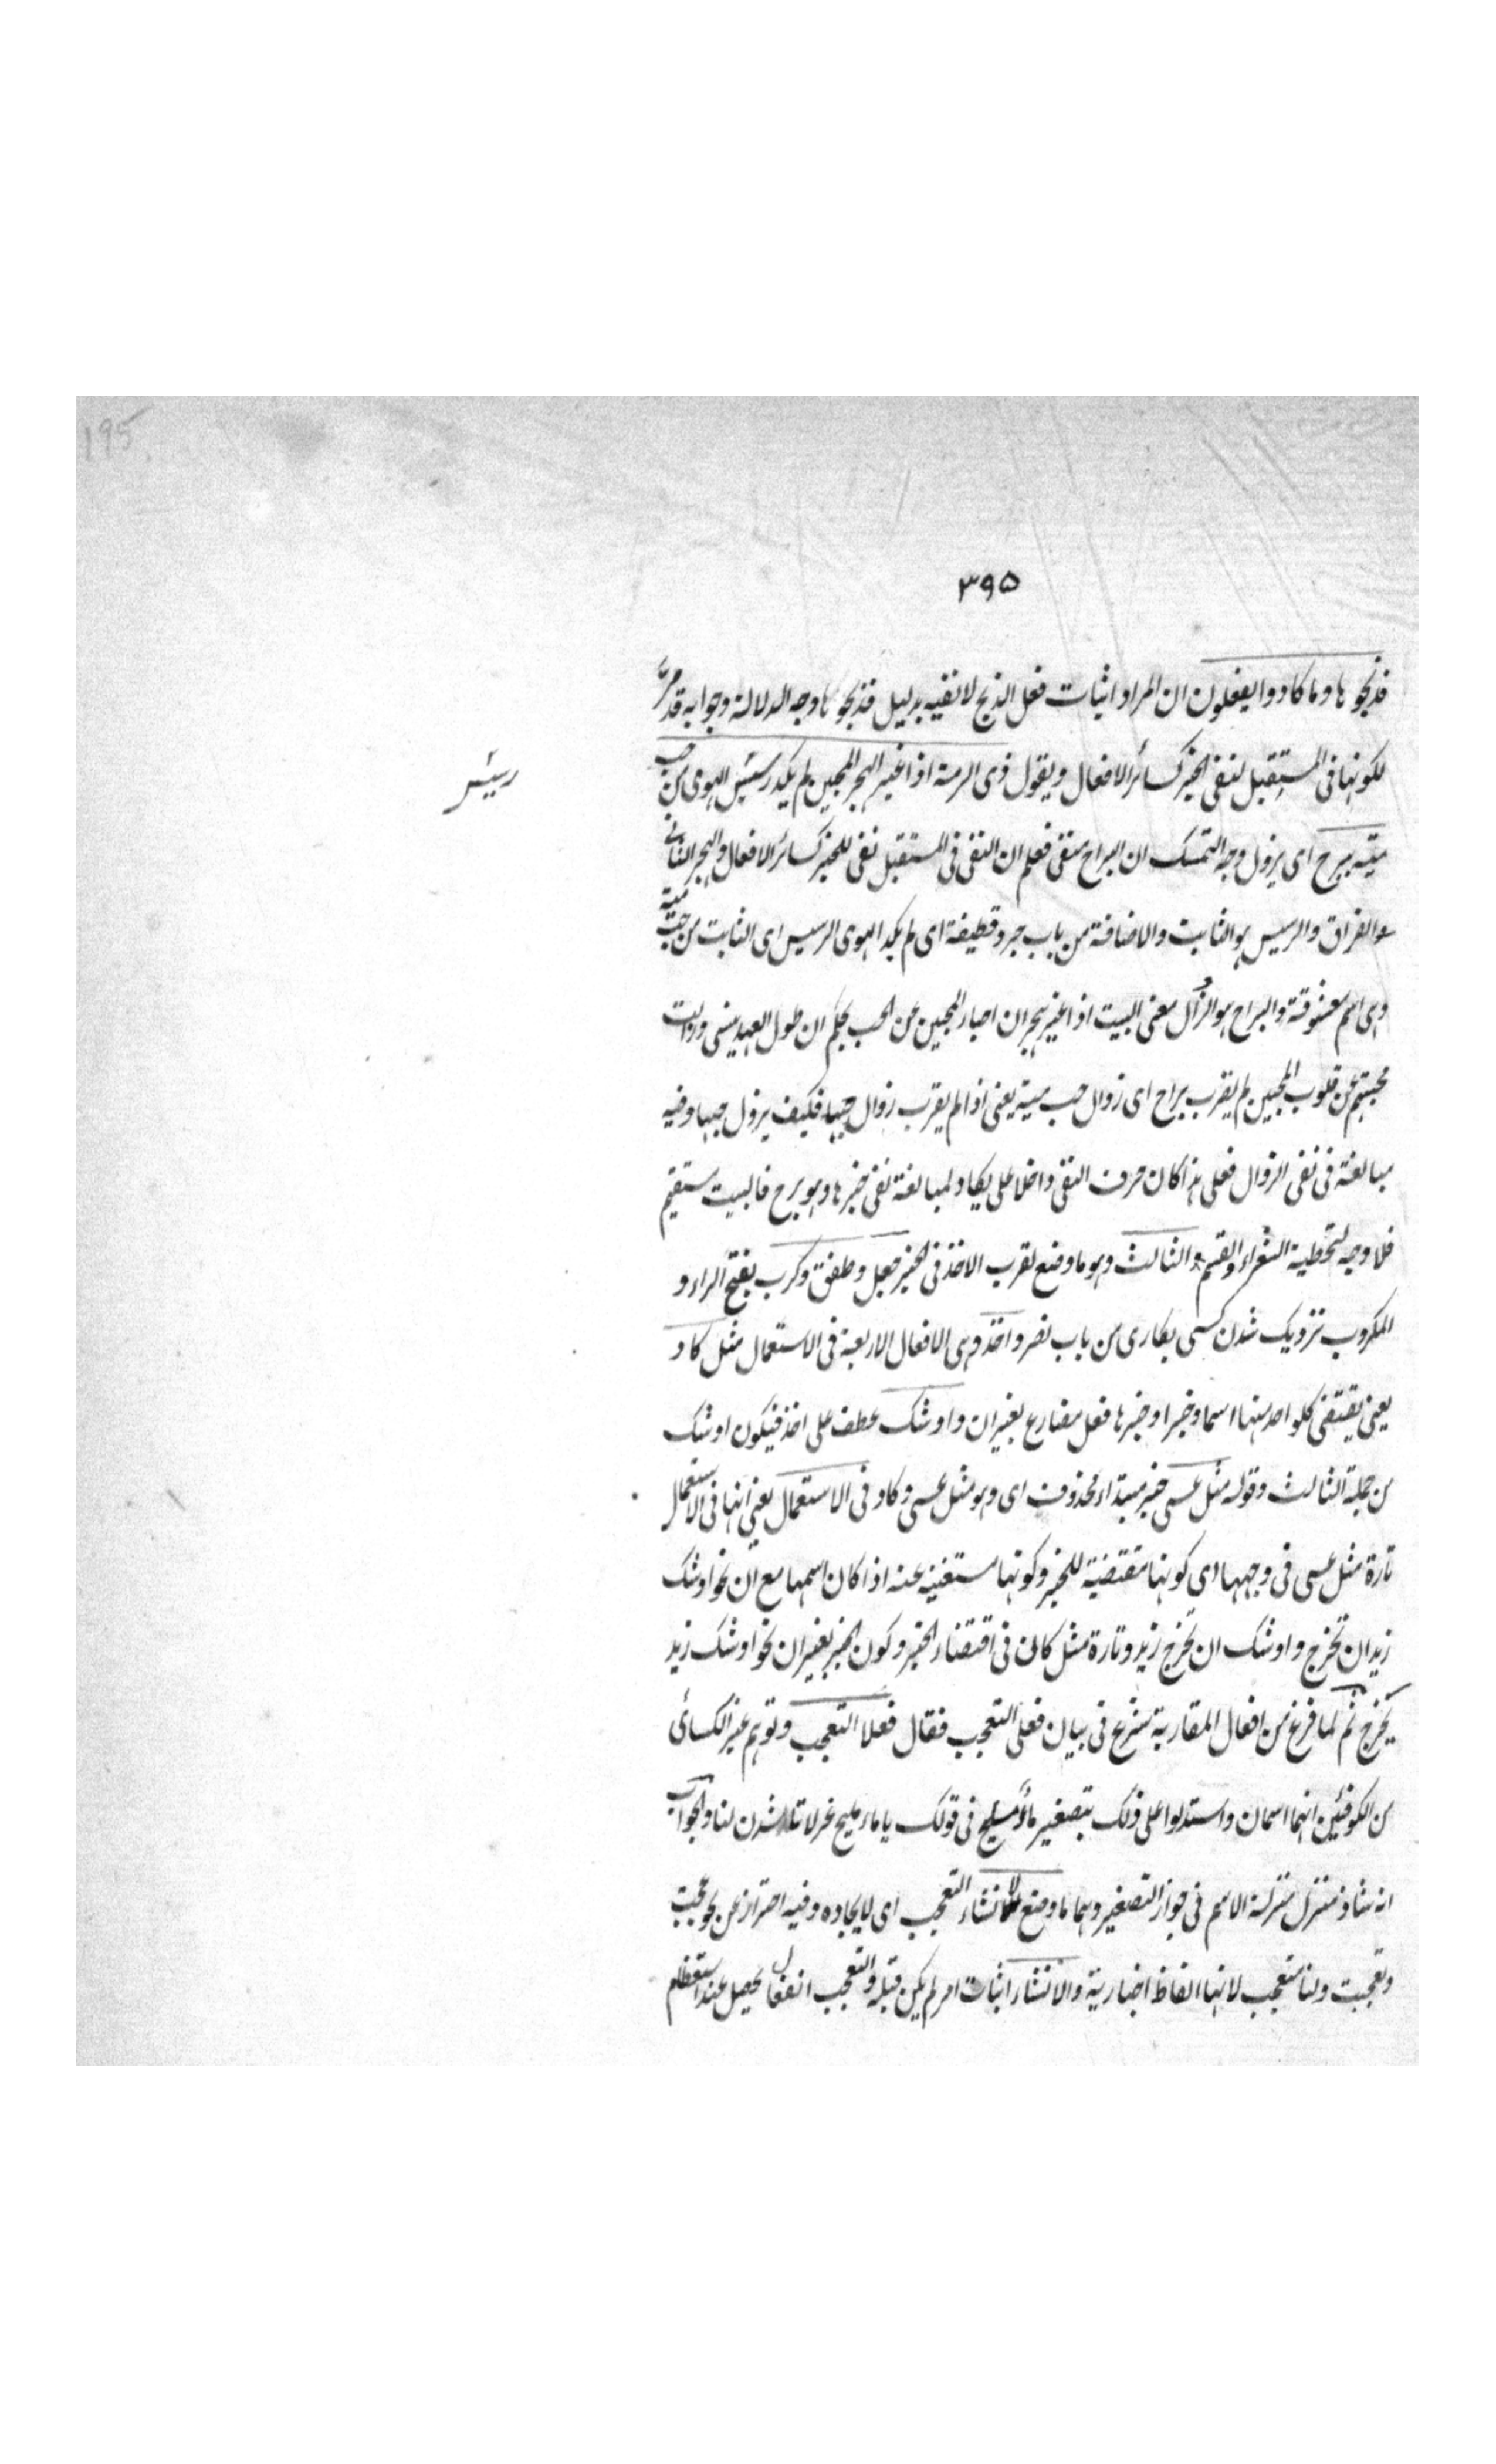 195
۳۹۵
فذبحوها وما كادوا يفعلون ان المراد اثبات فعل الذبح لا نفيه بدليل فذبحوها وجه الدلالة وجوابه قد مرّ
لكونها فى المستقبل لنفى الخبر كسائر الافعال وبقول ذى الرمة اذا غير الهجر المحبين لم يكد رسيس الهوى من حب
رسيس
ميّة يبرح اى يزول وجه التمسك ان البراح منفى فعلم ان النفى فى المستقبل نفى للخبر كسائر الافعال والهجر الثانى
هو الفراق والرسيس هو الثابت والاضافة من باب جرد قطيفة اى لم يكد الهوى الرسيس اى الثابت من حب ميّة
وهى اسم معشوقة والبراح هو الزوال معنى البيت اذا غير هجران احبار المحبين عن الحب بحكم ان طول العهد ينسى وزالت
محبتهم عن قلوب المحبين لم يقرب براح اى زوال حب ميتة يعنى اذا لم يقرب زوال حبها فكيف يزول حبها وفيه
مبالغة فى نفى الزوال فعلى هذا كان حرف النفى داخلا على يكاد لمبالغة نفى خبرها وهو يبرح فالبيت مستقيم
فلا وجه لتخطية الشعراء والقسم الثالث وهو ما وضع لقرب الاخذ فى الخبر جعل وطفق وكرب بفتح الراء و
المكروب نزديک شدن كسى بكارى من باب نصر واخذ وهى الافعال الاربعة فى الاستعمال مثل كاد
يعنى يقتضى كلواحد منها اسما وخبرا وخبرها فعل مضارع بغير ان واوشك عطف على اخذ فيكون اوشك
من جملة الثالث وقوله مثل عسى خبر مبتداء محذوف اى وهو مثل عسى وكاد فى الاستعمال يعنى انها فى الاستعمال
تارة مثل عسى فى وجهها اى كونها مقتضية للخبر وكونها مستغنية عنه اذا كان اسمها مع ان نحو اوشك
زيد ان يخرج واوشك ان يخرج زيد وتارة مثل كان فى اقتضاء الخبر وكون الخبر بغير ان نحو اوشك زيد
يخرج ثم لما فرغ من افعال المقاربة شرع فى بيان فعلى التعجب فقال فعلا التعجب وتوهم غير الكسائى
من الكوفيين انهما اسمان واستدلوا على ذلك بتصغير ماء مليح فى قولك ياماء مليح غزلانا شدن لنا والجواب
انه شاذ منزل منزلة الاسم فى جواز التصغير وهما ما وضع لانشاء التعجب اى لايجاده وفيه احتراز عن نحو عجبت
وتعجبت ولنا متعجب لانها الفاظ اخبارية والانشاء اثبات امر لم يكن قبله والتعجب انفعال يحصل عند استعظام